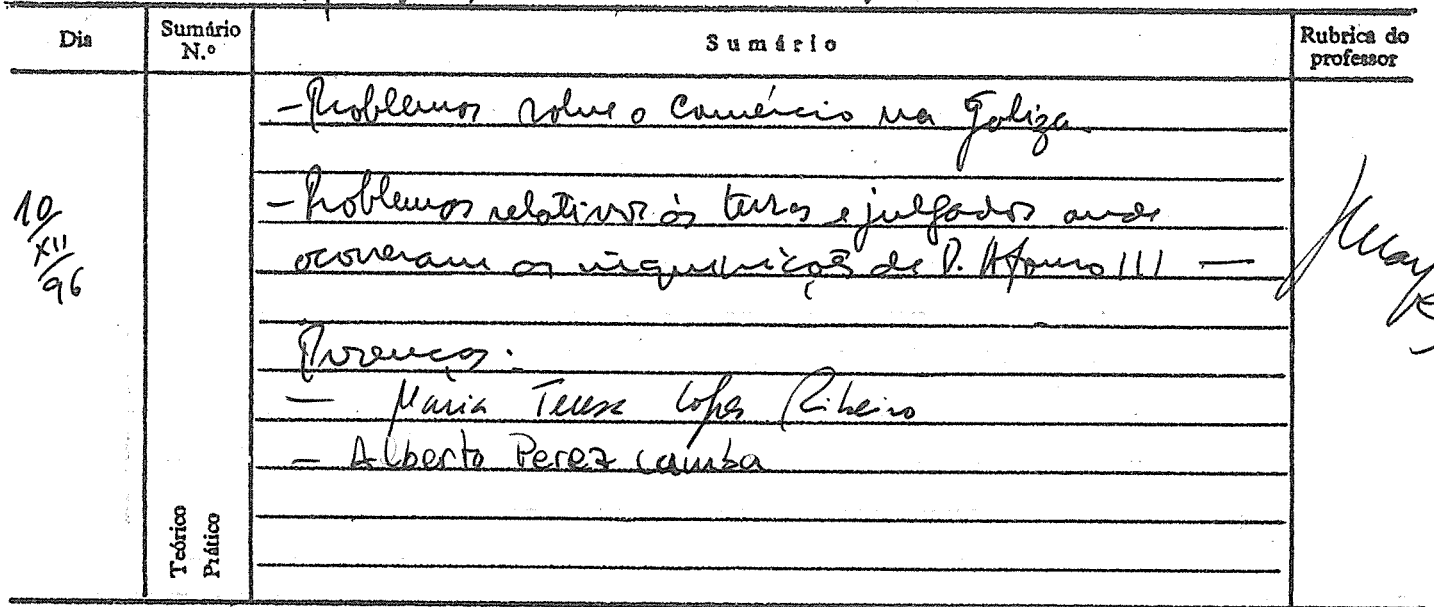 Dia
Sumário N.º
Sumário
Rubrica do professor
10/XII/96
- Problemas sobre o Comércio na Galiza.
- Problemas relativos às terras e julgados onde
ocorreram as inquirições de D. Afonso III —
Presenças:
- Maria Teresa Lopes Ribeiro
- Alberto Perez Camba
Teórico
Prático